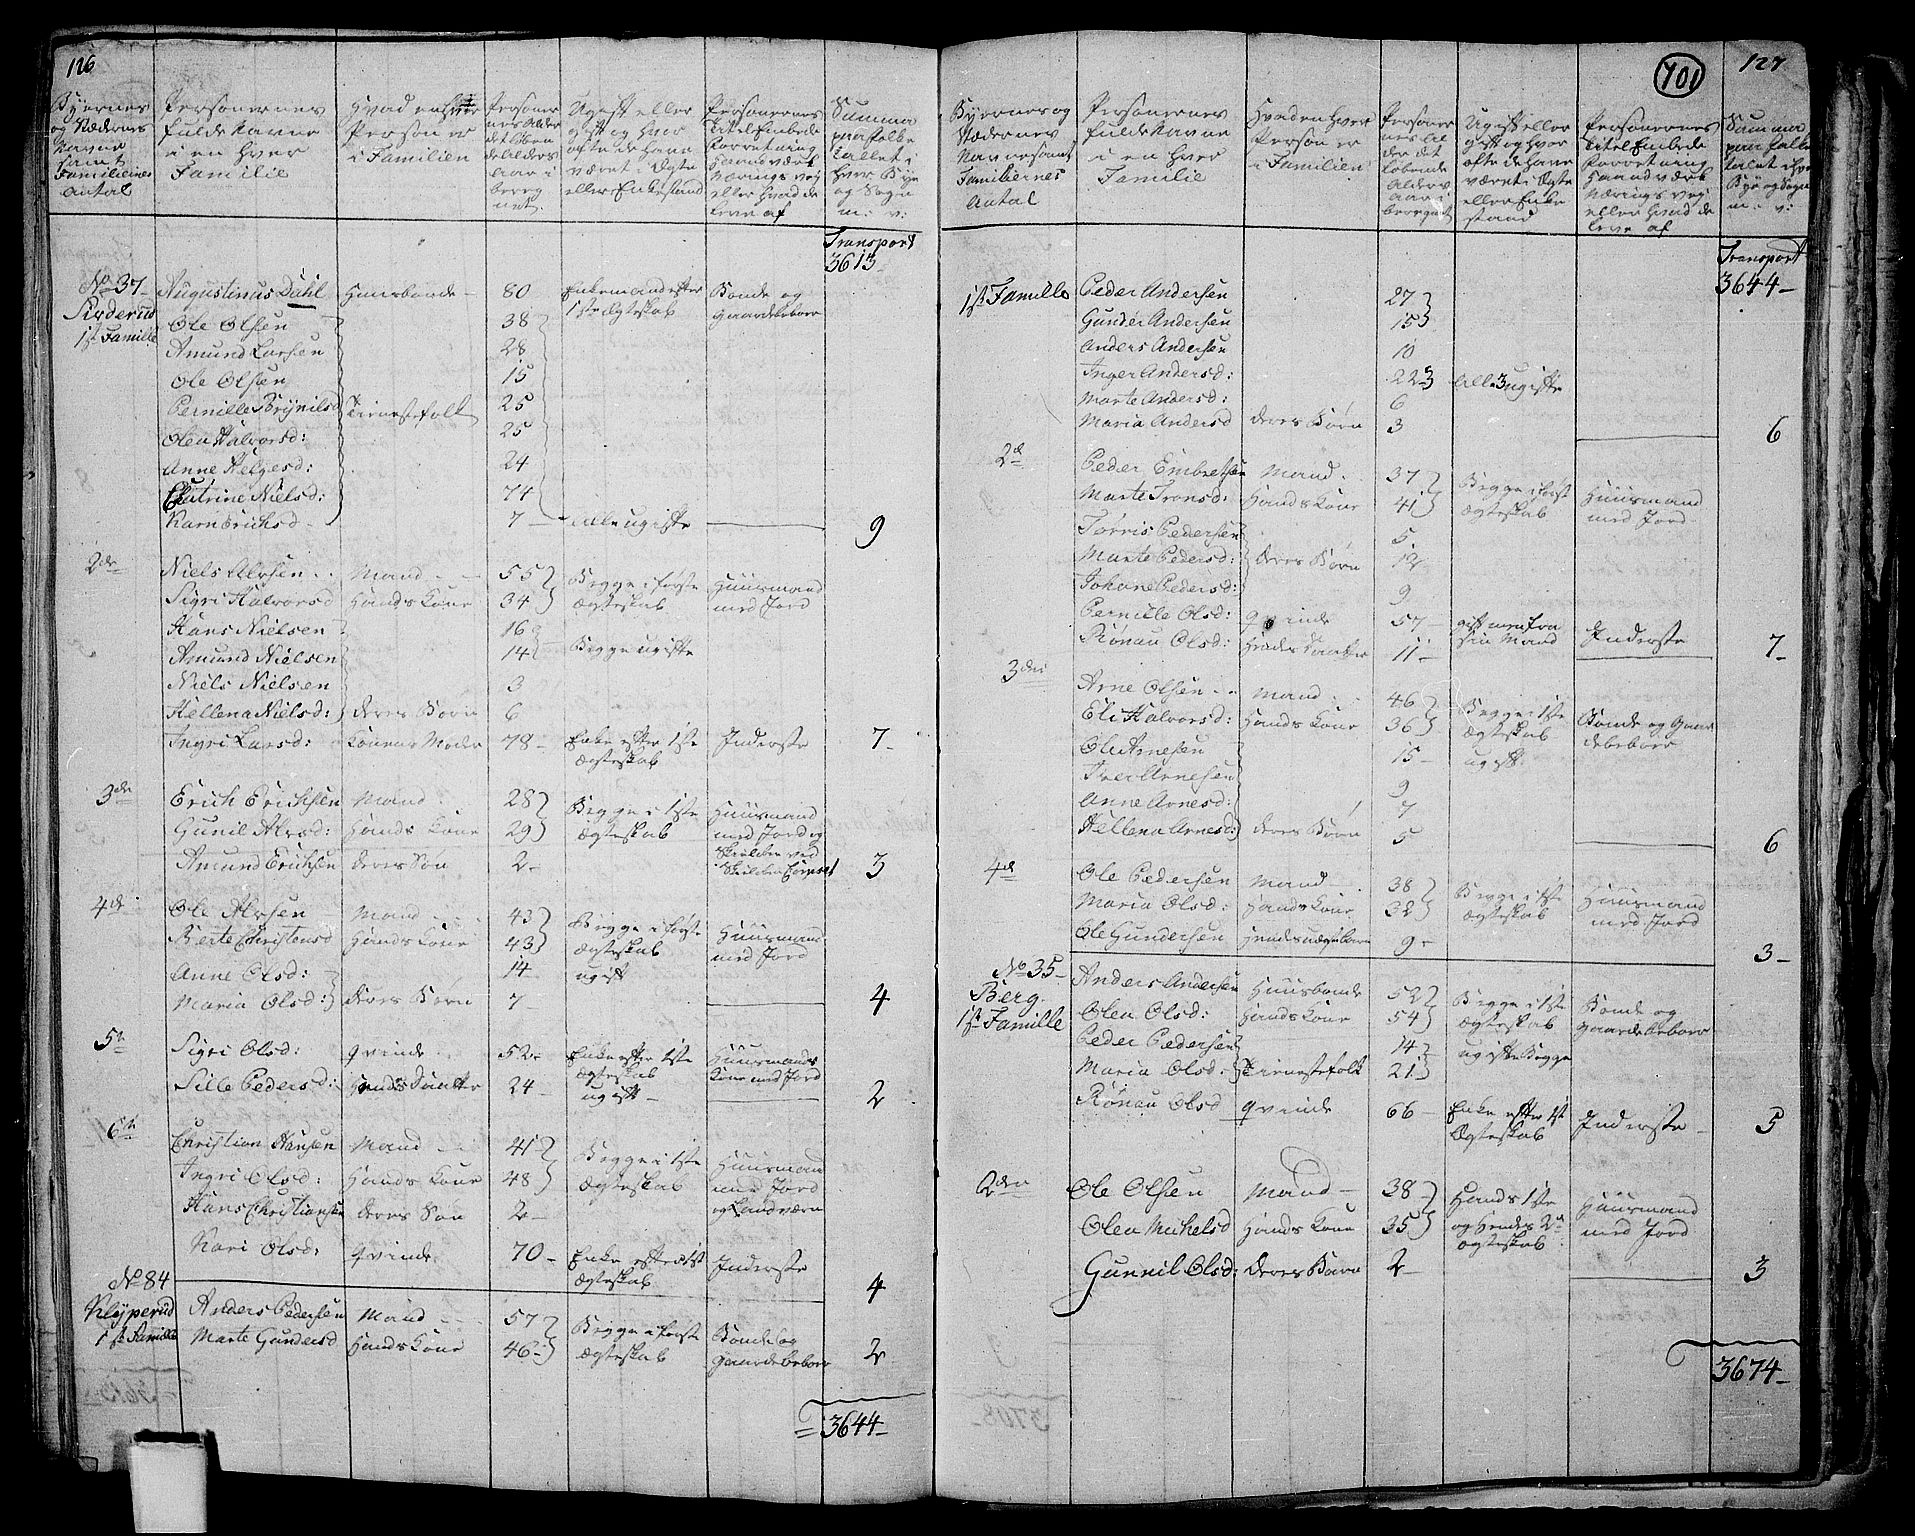 126
Byernes og Stædernes Navne samt Familiernes Antal | Personernes fulde Navne i en hver Familie | Hvad enhver Person er i Familien | Personernes Alder det løbende Alders aar iberegnet | Ugift eller gift og hvor ofte de have været i Ægte eller Enkestand | Personernes Titel Embede Forretning Haandværk Nærings vej eller hvad de leve af | Summa paa Folke Tallet i hver Bye og Sogn m: v:
Transport 3613
No 37 Augustinus Dahl Huusbonde 80 Enkemand efter 1ste Ægteskab Bonde og gaardebeboer
1st Famille Ole Olsen 38
Amund Larsen 28
Ole Olsen 15
Pernille Brynilsd Tienestefolk 25
Olea Halvorsd: 25
Anne Helgesd: 24
Catrine Nielsd: 74
Karn Erichsd 7 alle ugifte 9
2den Niels Alvsen Mand 55 Begge i første Ægteskab Huusmand med Jord
Sigri Halvorsd Hands Kone 34
Hans Nielsen 16
Amund Nielsen 14 Begge ugifte
Niels Nielsen 3
Hellena Nielsd: deres Børn 6
Ingri Larsd: Konens Moder 78 Enke efter 1ste Ægteskab Inderste 7
3die Erich Erichsen Mand 28 Begge i 1ste Ægteskab Huusmand med Jord og
Gunil Alvsd: Hands Kone 29
Amund Erichsen deres Søn 2 3
4de Ole Alvsen Mand 43 Begge i første Ægteskab Huusmand med Jord
Berte Christensd Hands Kone 43
Anne Olsd: 14 ugift
Maria Olsd: deres Børn 7 4
5te Sigri Olsd: qvinde 52 Enke efter 1ste Ægteskab Huusmands Kone med Jord
Sille Pedersd: Hendes Daatter 24 ugift 2
6te Christian Hansen Mand 41 Begge i 1ste Ægteskab Huusmand med Jord og Landværn
Ingri Olsd: Hands Kone 48
Hans Christiansen deres Søn 2
Kari Olsd: qvinde 70 Enke efter 1st Ægteskab Inderste 4
No 84
Klyperud
1st Famille Anders Pedersen Mand 57 Begge i første Ægteskab Bonde og gaardebeboer
Marte Gundersd Hands Kone 46 2
3644
701
127
Byernes og Stædernes Navne samt Familiernes Antal | Personernes fulde Navne i en hver Familie | Hvad en hver Person er i Familien | Personernes Alder det løbende Alders aar iberegnet | Ugift eller gift og hvor ofte de have været i Ægte eller Enke stand | Personernes Titel Embede Forretning Haandværk Nærings vej eller hvad de leve af | Summa paa Folketalet i hver Bye og Sogn m: v:
Transport 3644
1st Famille Peder Andersen 27
Gunder Andersen 15
Anders Andersen 10
Inger Andersd: 22 alle 3 ugifte
Marte Andersd: 6
Maria Andersd deres Børn 3 6
2d Peder Embretsen Mand 37 Begge i først Ægteskab Huusmand med Jord
Marte Tronsd: Hands Kone 41
Torris Pedersen 5
Marte Pedersd: deres Børn 12
Johane Pedersd: 9
Pernille Olsd: qvinde 57 gift men fra sin Mand Inderste
Rønau Olsd: Hendes Daatter 11 7
3die Arne Olsen Mand 46 Begge i 1ste Ægteskab Bonde og Gaardebeboer
Eli Halvorsd: Hands Kone 36
Ole Arnesen 15 ugift
Iver Arnesen 9
Anne Arnesd: 7
Hellena Arnesd: deres Børn 5 6
4de Ole Pedersen Mand 38 Begge i 1ste Ægteskab Huusmand med Jord
Maria Olsd: Hands Kone 32
Ole Gundersen Hendes uægte barn 9 3
No 35
Berg
1st Famille Anders Andersen Huusbonde 52 Begge i 1ste Ægteskab Bonde og gaardebeboer
Olea Olsd: Hands Kone 54
Peder Pedersen 14 ugifte Begge
Maria Olsd: Tienestefolk 21
Rønau Olsd qvinde 66 Enke efter 1st Ægteskab Inderste 5
2den Ole Olsen Mand 38 Hands 1ste og Hendes 2n Ægteskab Huusmand med Jord
Olea Michelsd Hands Kone 35
Gunnil Olsd: deres Barn 2 3
3674